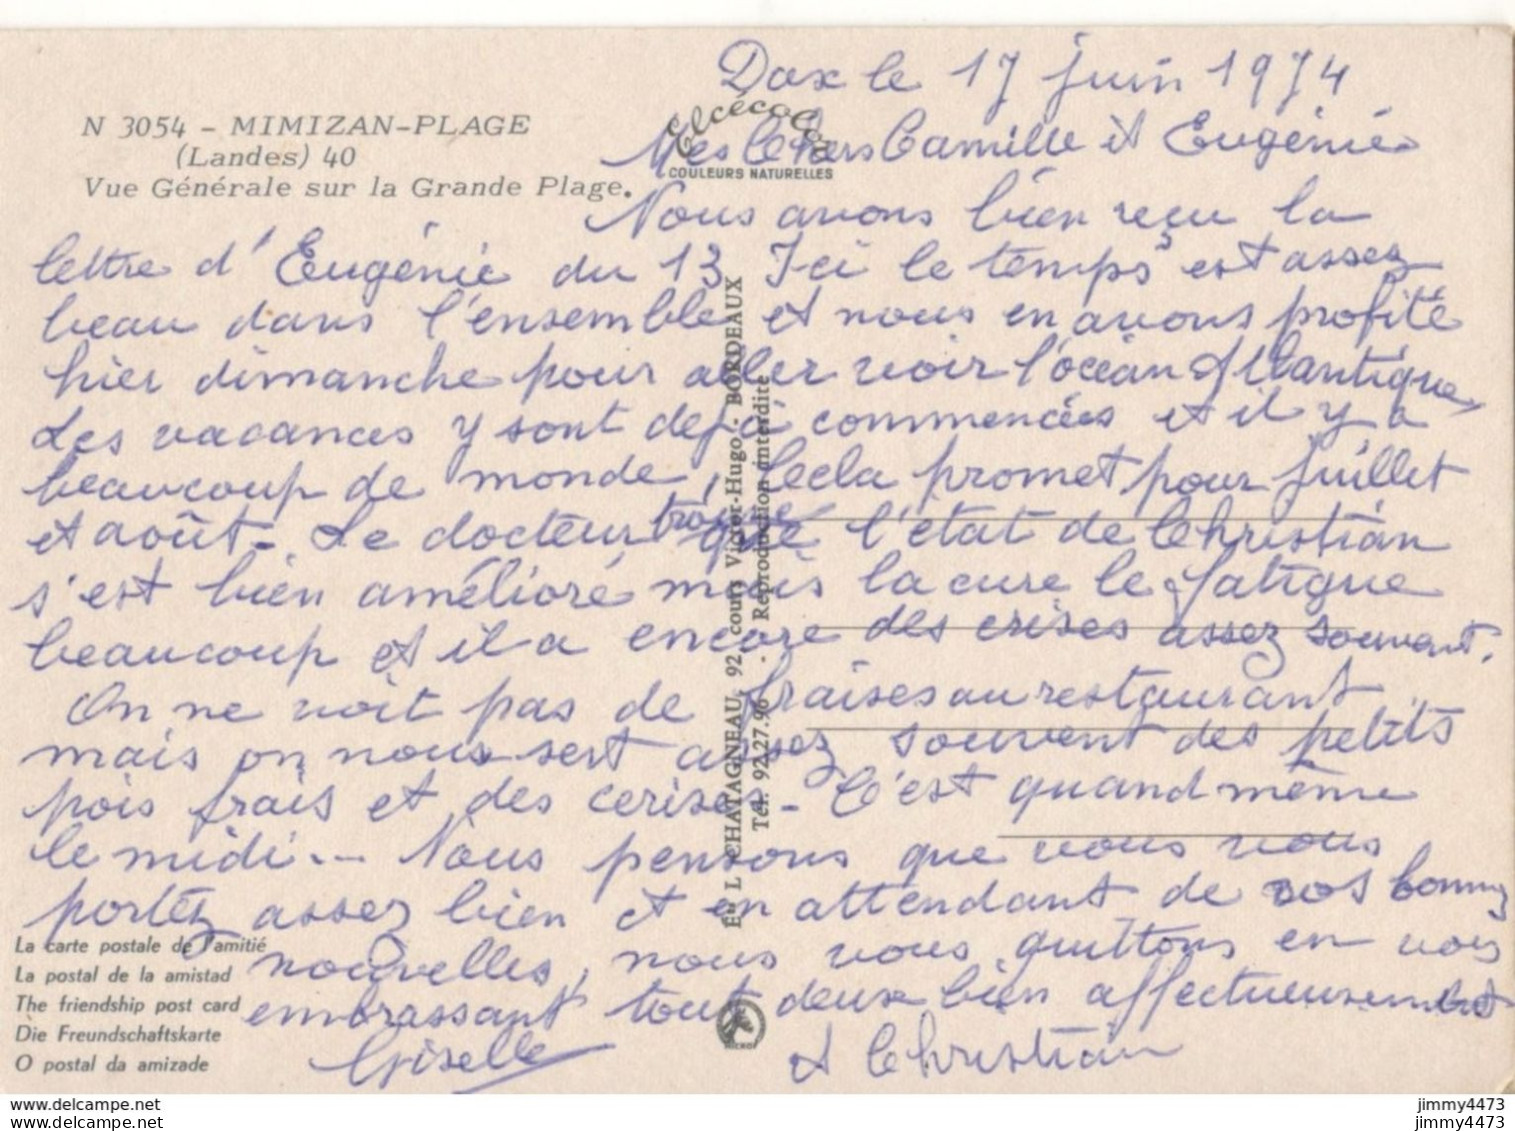 Dax le 17 juin 1974
N 3054 - MIMIZAN-PLAGE
(Landes) 40
Vue Générale sur la Grande Plage.
Elcécolor
COULEURS NATURELLES
Mes Chers Camille et Eugénie
Nous avons bien reçu la
lettre d'Eugénie du 13. Ici le temps est assez
beau dans l'ensemble et nous en avons profité
hier dimanche pour aller voir l'océan Atlantique,
Les vacances y sont dejà commencées et il y a
beaucoup de monde, Cela promet pour juillet
et août - Le docteur trouve que l'état de Christian
s'est bien amélioré mais la cure le fatigue
beaucoup et il a encore des crises assez souvent.
On ne voit pas de fraises au restaurant
mais on nous sert assez souvent des petits
pois frais et des cerises - C'est quand même
le midi.-- Nous pensons que vous vous
portez assez bien et en attendant de vos bonnes
nouvelles, nous vous quittons en vous
embrassant tout deux bien affectueusement
Giselle et Christian
La carte postale de l'amitié
La postal de la amistad
The friendship post card
Die Freundschaftskarte
O postal da amizade
Ets L. CHATAGNEAU, 92, cours Victor-Hugo - BORDEAUX
Tél. 92.27.96 - Reproduction interdite
www.delcampe.net
www.delcampe.net
jimmy4473
jimmy4473